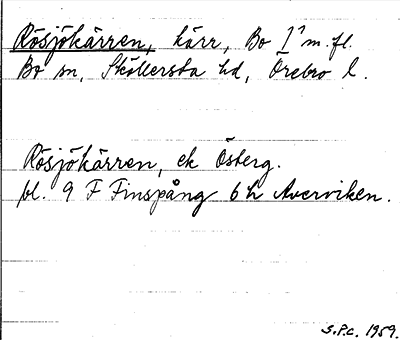 Rösjökärren, kärr, Bo 1⁷ m.fl.
Bo sn, Sköllersta hd, Örebro l.
Rösjökärren, ek Österg.
bl. 9 F Finspång 6 h Averviken.
S.P.C. 1959.